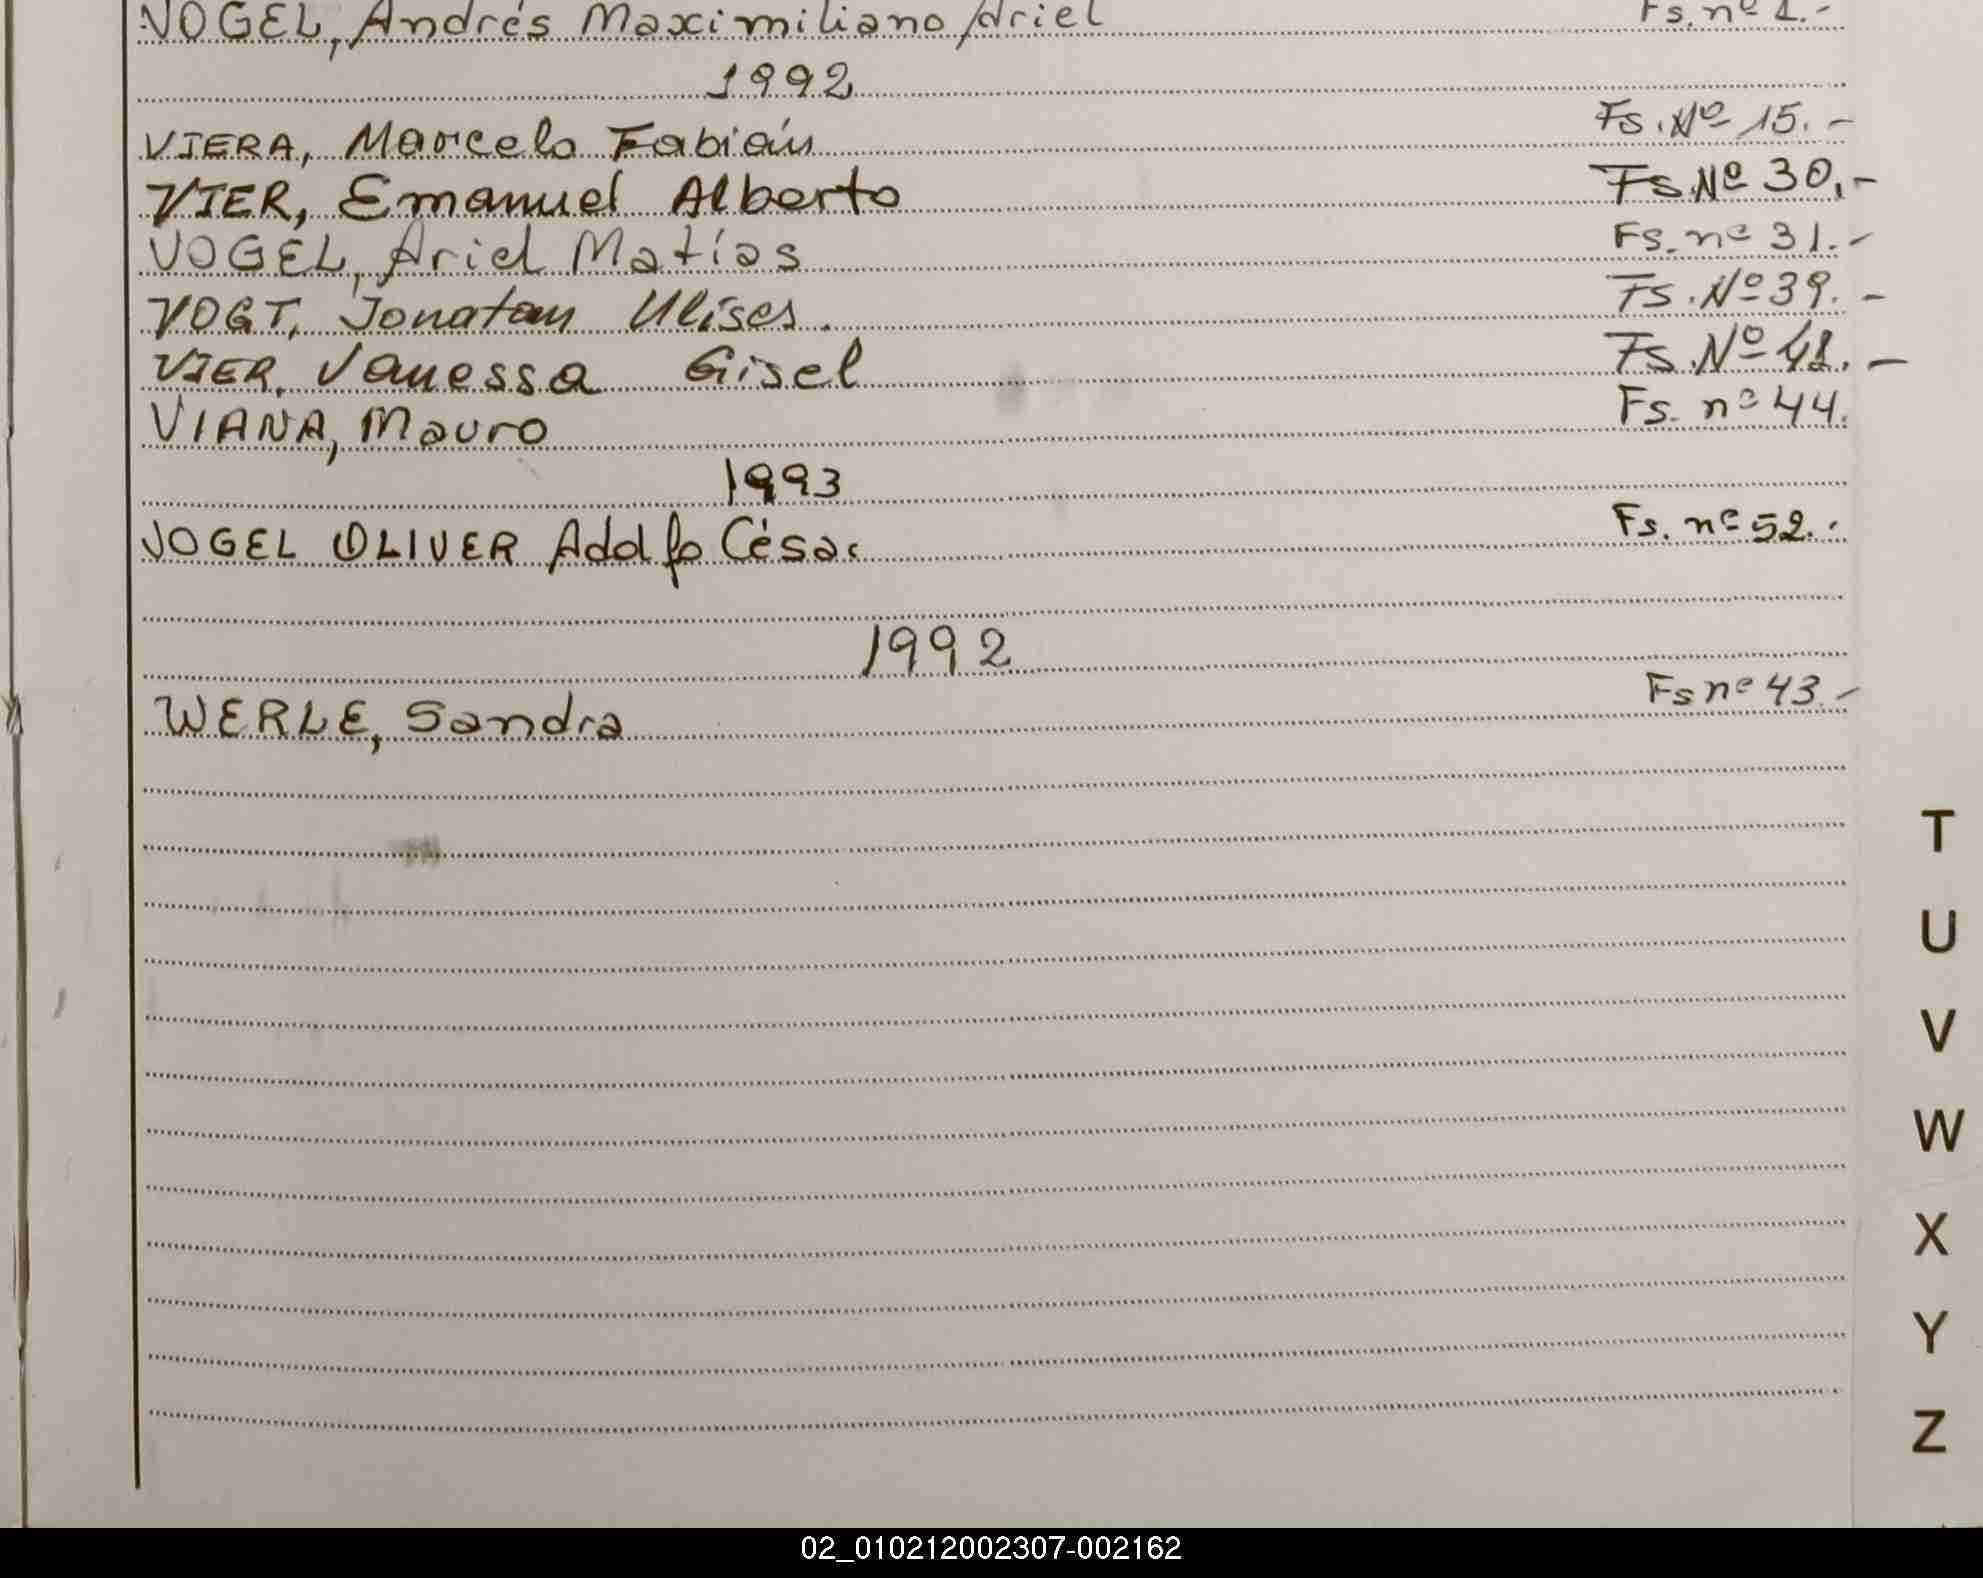 VOGEL, Andrés Maximiliano Ariel Fs. nº 1.-
1992
VIERA, Marcelo Fabián Fs. Nº 15. -
VIER, Emanuel Alberto Fs. Nº 30.-
VOGEL, Ariel Matías Fs. nº 31.-
VOGT, Jonatan Ulises. Fs. Nº 39. -
VIER, Vanessa Gisel Fs. Nº 41. -
VIANA, Mauro Fs. nº 44.
1993
VOGEL OLIVER Adolfo César Fs. nº 52.-
1992
WERLE, Sandra Fs nº 43.-
T
U
V
W
X
Y
Z
02_010212002307-002162